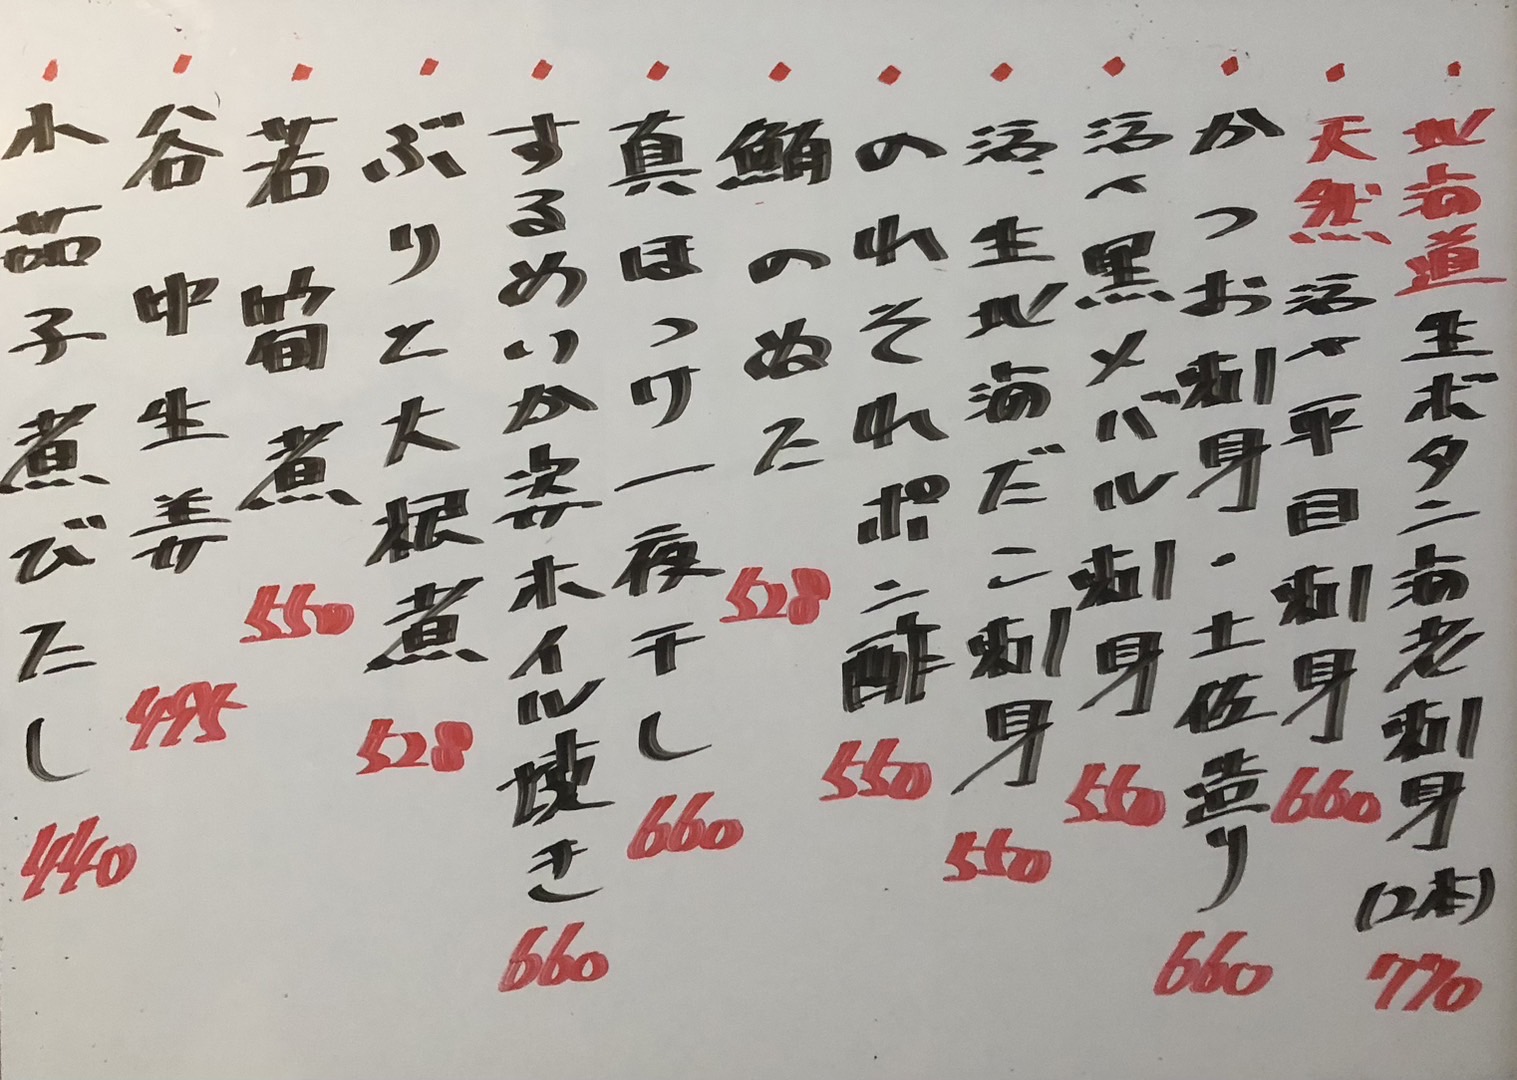 北海道生ボタン海老刺身(2本) 770
天然活〆平目刺身 660
かつお刺身・土佐造り 660
活〆黒メバル刺身 550
活、生北海だこ刺身 550
のれそれポン酢 550
鮪のぬた 528
真ほっけ一夜干し 660
するめいか姿ホイル焼き 660
ぶりと大根煮 528
若筍煮 550
谷中生姜 495
水茄子煮びたし 440